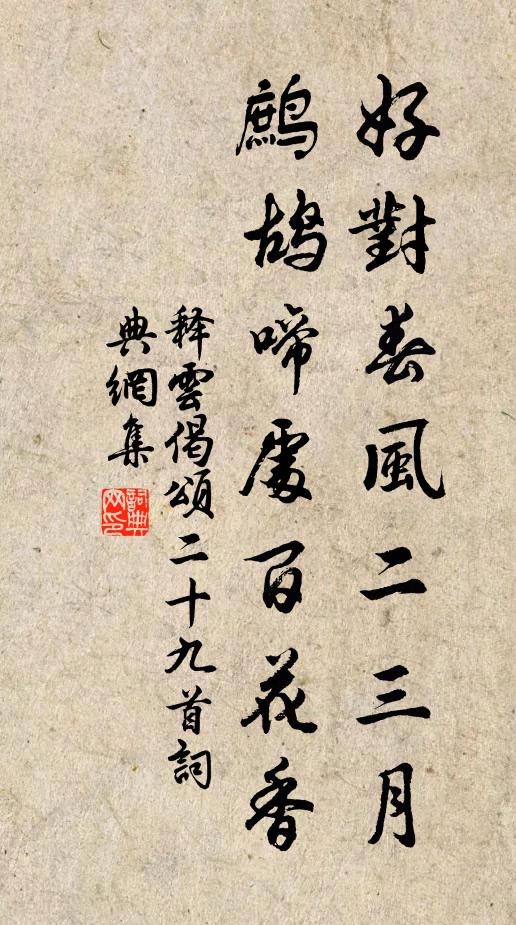 好對春風二三月
鷓鴣啼處百花香
释雲偈頌二十九首詞
典網集
詞典網印